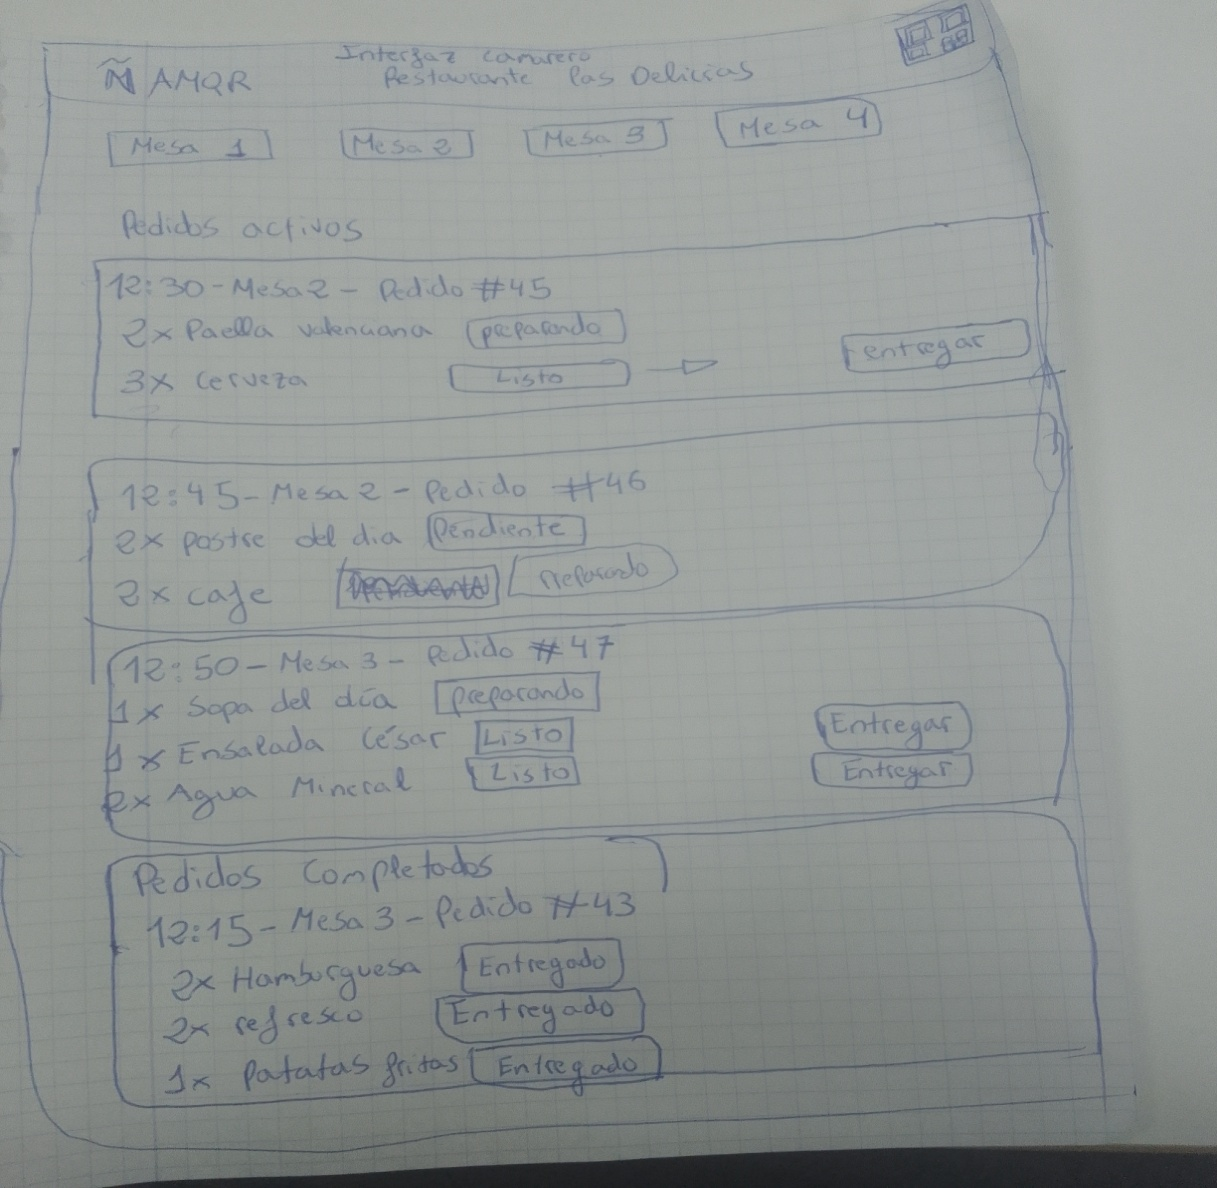 ÑAMQR
Interfaz camarero
Restaurante las Delicias
Mesa 1 Mesa 2 Mesa 3 Mesa 4
Pedidos activos
12:30 - Mesa 2 - Pedido #45
2x Paella valenciana preparando
3x cerveza Listo entregar
12:45 - Mesa 2 - Pedido #46
2x postre del dia Pendiente
2x cafe preparando
12:50 - Mesa 3 - Pedido #47
1x Sopa del día preparando
1x Ensalada César Listo Entregar
2x Agua Mineral Listo Entregar
Pedidos Completados
12:15 - Mesa 3 - Pedido #43
2x Hamburguesa Entregado
2x refresco Entregado
1x Patatas fritas Entregado